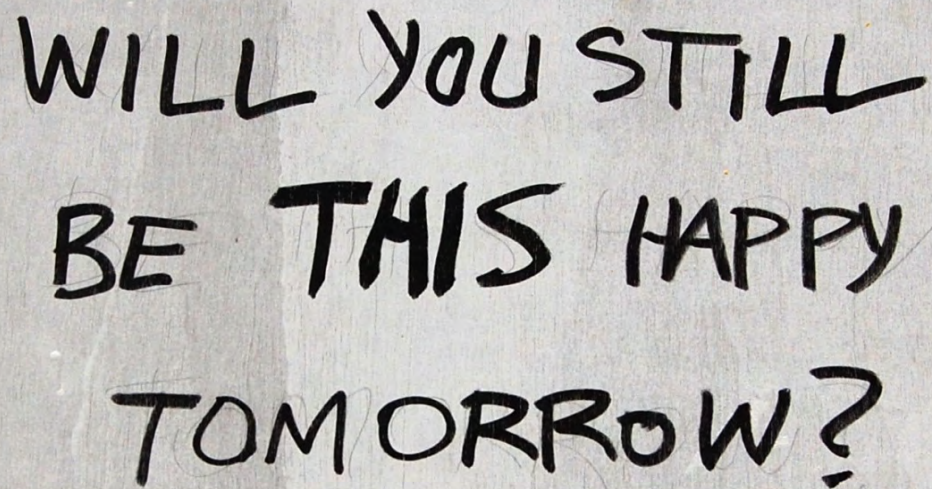 WILL YOU STILL
BE THIS HAPPY
TOMORROW?